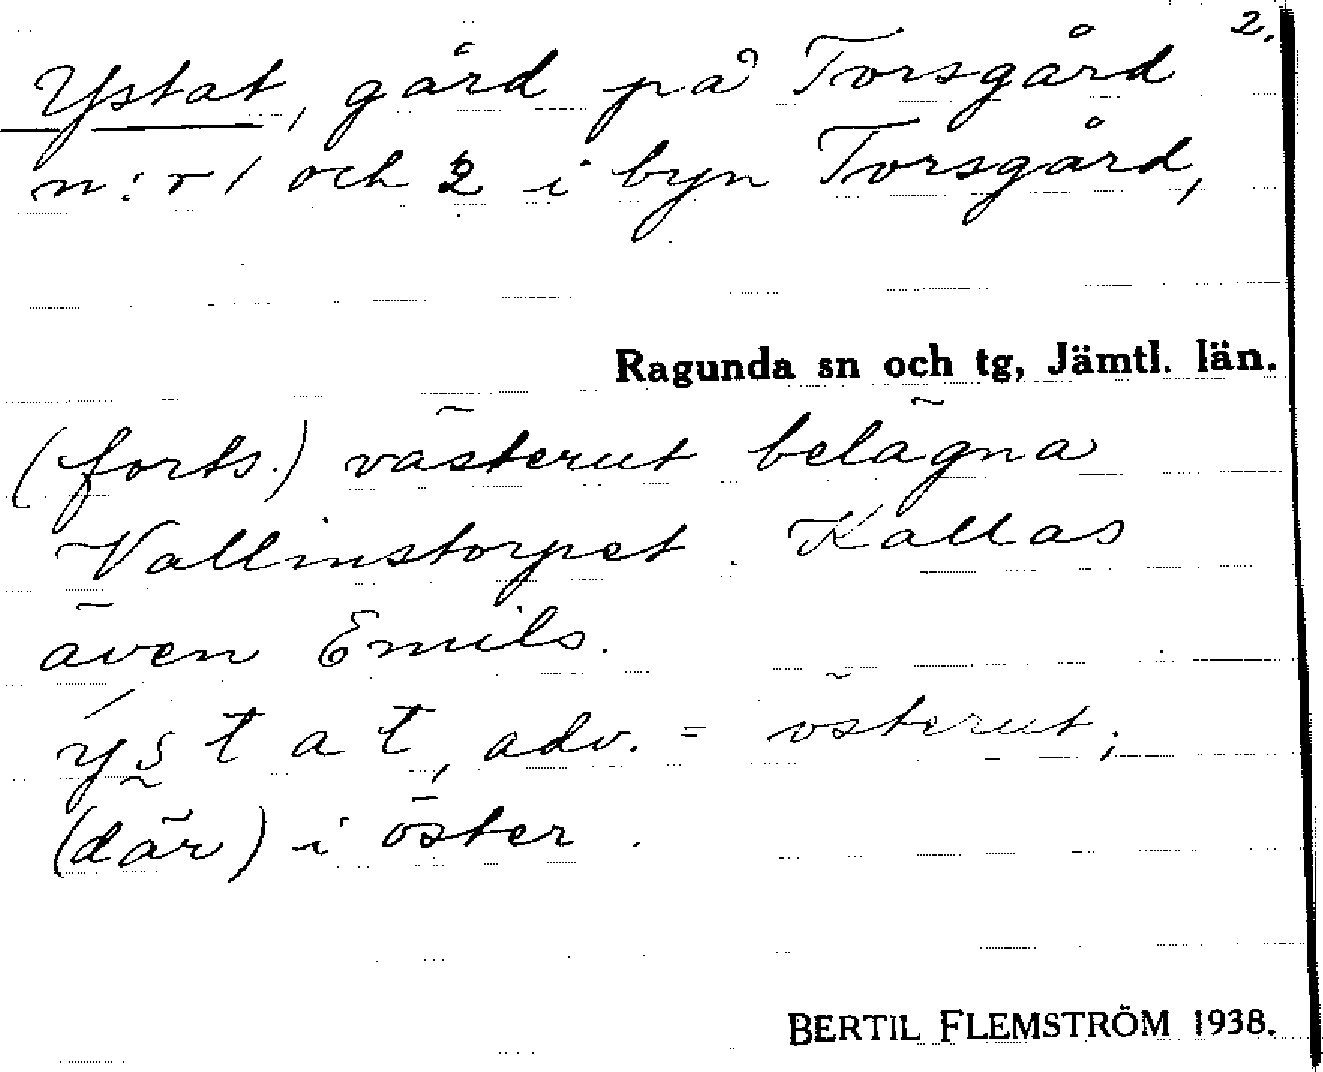 2.
Ystat, gård på Torsgård
n:r 1 och 2 i byn Torsgård,
Ragunda sn och tg, Jämtl. län.
(forts.) västerut belägna
Vallinstorpet. Kallas
även Emils.
ýstat, adv. = österut;
(där) i öster.
BERTIL FLEMSTRÖM 1938.